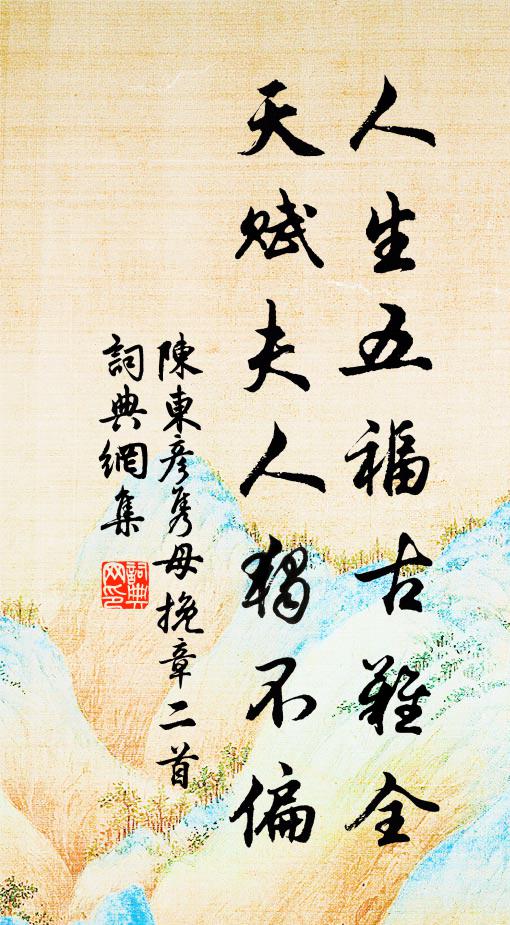 人生五福古難全
天賦夫人獨不偏
陳東彥雋母挽章二首
詞典網集
詞典网印